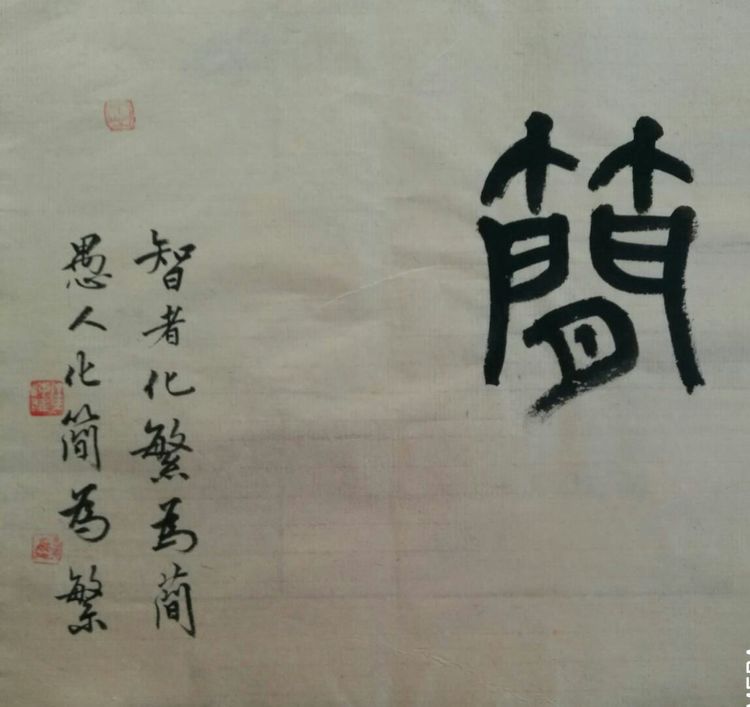 簡
智者化繁為簡
愚人化簡為繁